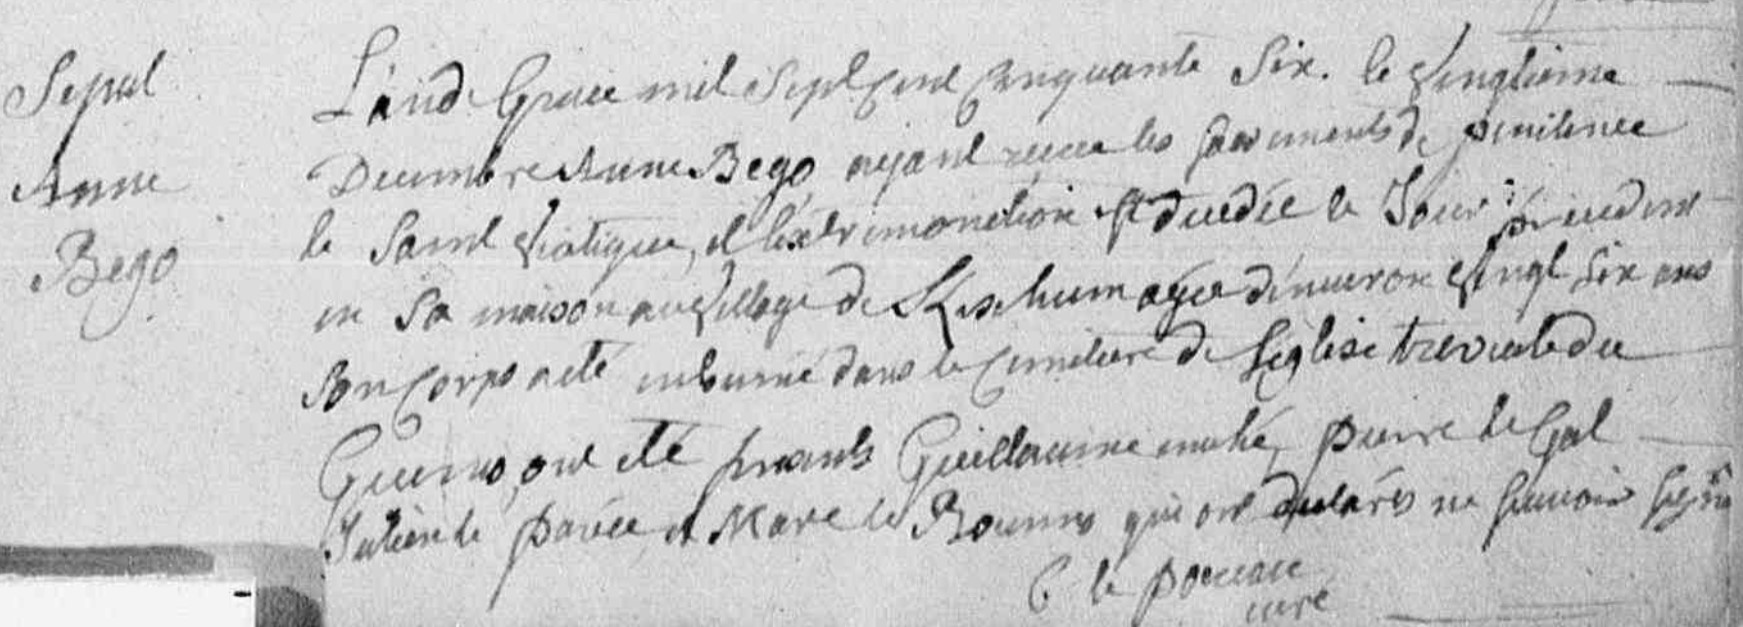 Sepul
Anne
Bego
L'an de Grace mil Sept Cent Cinquante Six. le Vingtieme
Decembre Anne Bego ayant recue les Sacrements de penitence
le Saint Viatique, et l'extremonction est decedée le Jour précedent
en Sa maison au Village de agée d'environ Vingt Six ans
Son Corps a eté inhumé dans le Cimetiere de l'église treviale du
Gueno, ont eté presents Guillaume mahé, pierre le Gal
Julien le et Marc le qui ont declarés ne Scavoir Signer
C le
curé